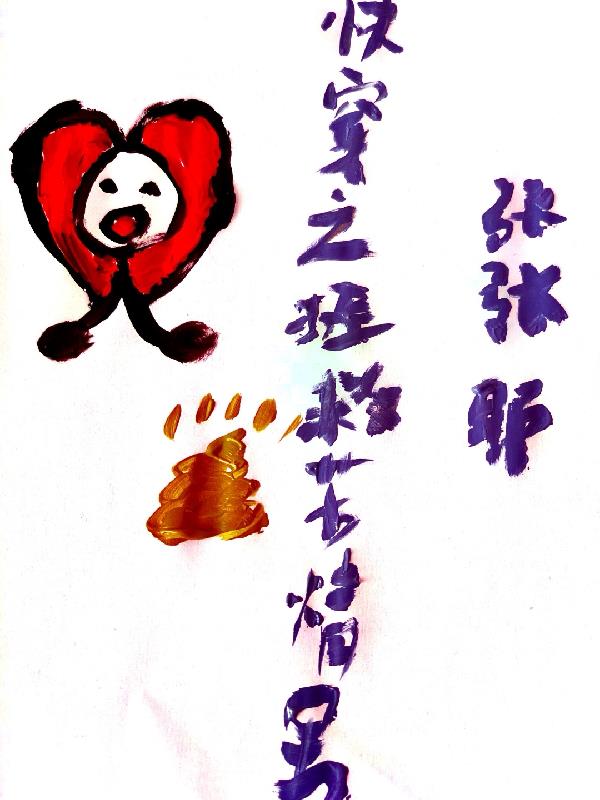 张张耶
快穿之拯救苦情男